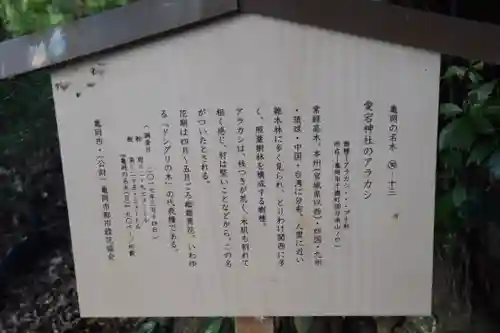 亀岡の名木 ㊿―十三
愛宕神社のアラカシ
樹種＝アラカシ・・・ブナ科
常緑高木。本州（宮城県以西）・四国・九州
・琉球・中国・台湾に分布。人里に近い
雑木林に多く見られ、とりわけ関西に多
く、照葉樹林を構成する樹種。
アラカシは、枝つきが荒く、木肌も割れて
粗く感じ、材は堅いことなどから、この名
がついたとされる。
花期は四月～五月ごろ総雄黄花。いわゆ
る「ドングリの木」の代表種である。
亀岡市・（公財）亀岡市都市緑花協会